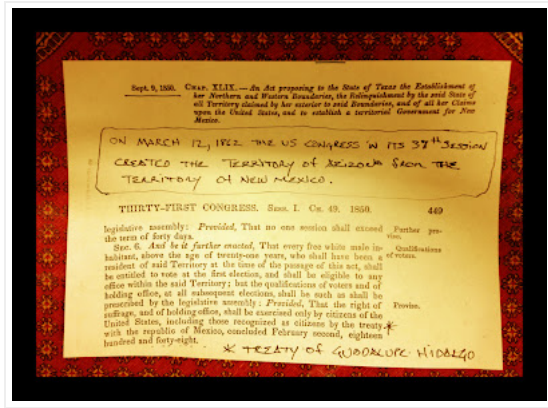 Sept. 9, 1850.
CHAP. XLIX. — An Act proposing to the State of Texas the Establishment of
her Northern and Western Boundaries, the Relinquishment by the said State of
all Territory claimed by her exterior to said Boundaries, and of all her Claims
upon the United States, and to establish a territorial Government for New
Mexico.
ON MARCH 12, 1862 THE US CONGRESS IN ITS 37th SESSION
CREATED THE TERRITORY OF ARIZONA FROM THE
TERRITORY OF NEW MEXICO.
THIRTY-FIRST CONGRESS. SESS. I. CH. 49. 1850. 449
legislative assembly: Provided, That no one session shall exceed
the term of forty days.
Further pro-
viso.
SEC. 6. And be it further enacted, That every free white male in-
habitant, above the age of twenty-one years, who shall have been a
resident of said Territory at the time of the passage of this act, shall
be entitled to vote at the first election, and shall be eligible to any
office within the said Territory; but the qualifications of voters and of
holding office, at all subsequent elections, shall be such as shall be
prescribed by the legislative assembly: Provided, That the right of
suffrage, and of holding office, shall be exercised only by citizens of the
United States, including those recognized as citizens by the treaty *
with the republic of Mexico, concluded February second, eighteen
hundred and forty-eight.
Qualifications
of voters.
Proviso.
* TREATY OF GUADALUPE HIDALGO